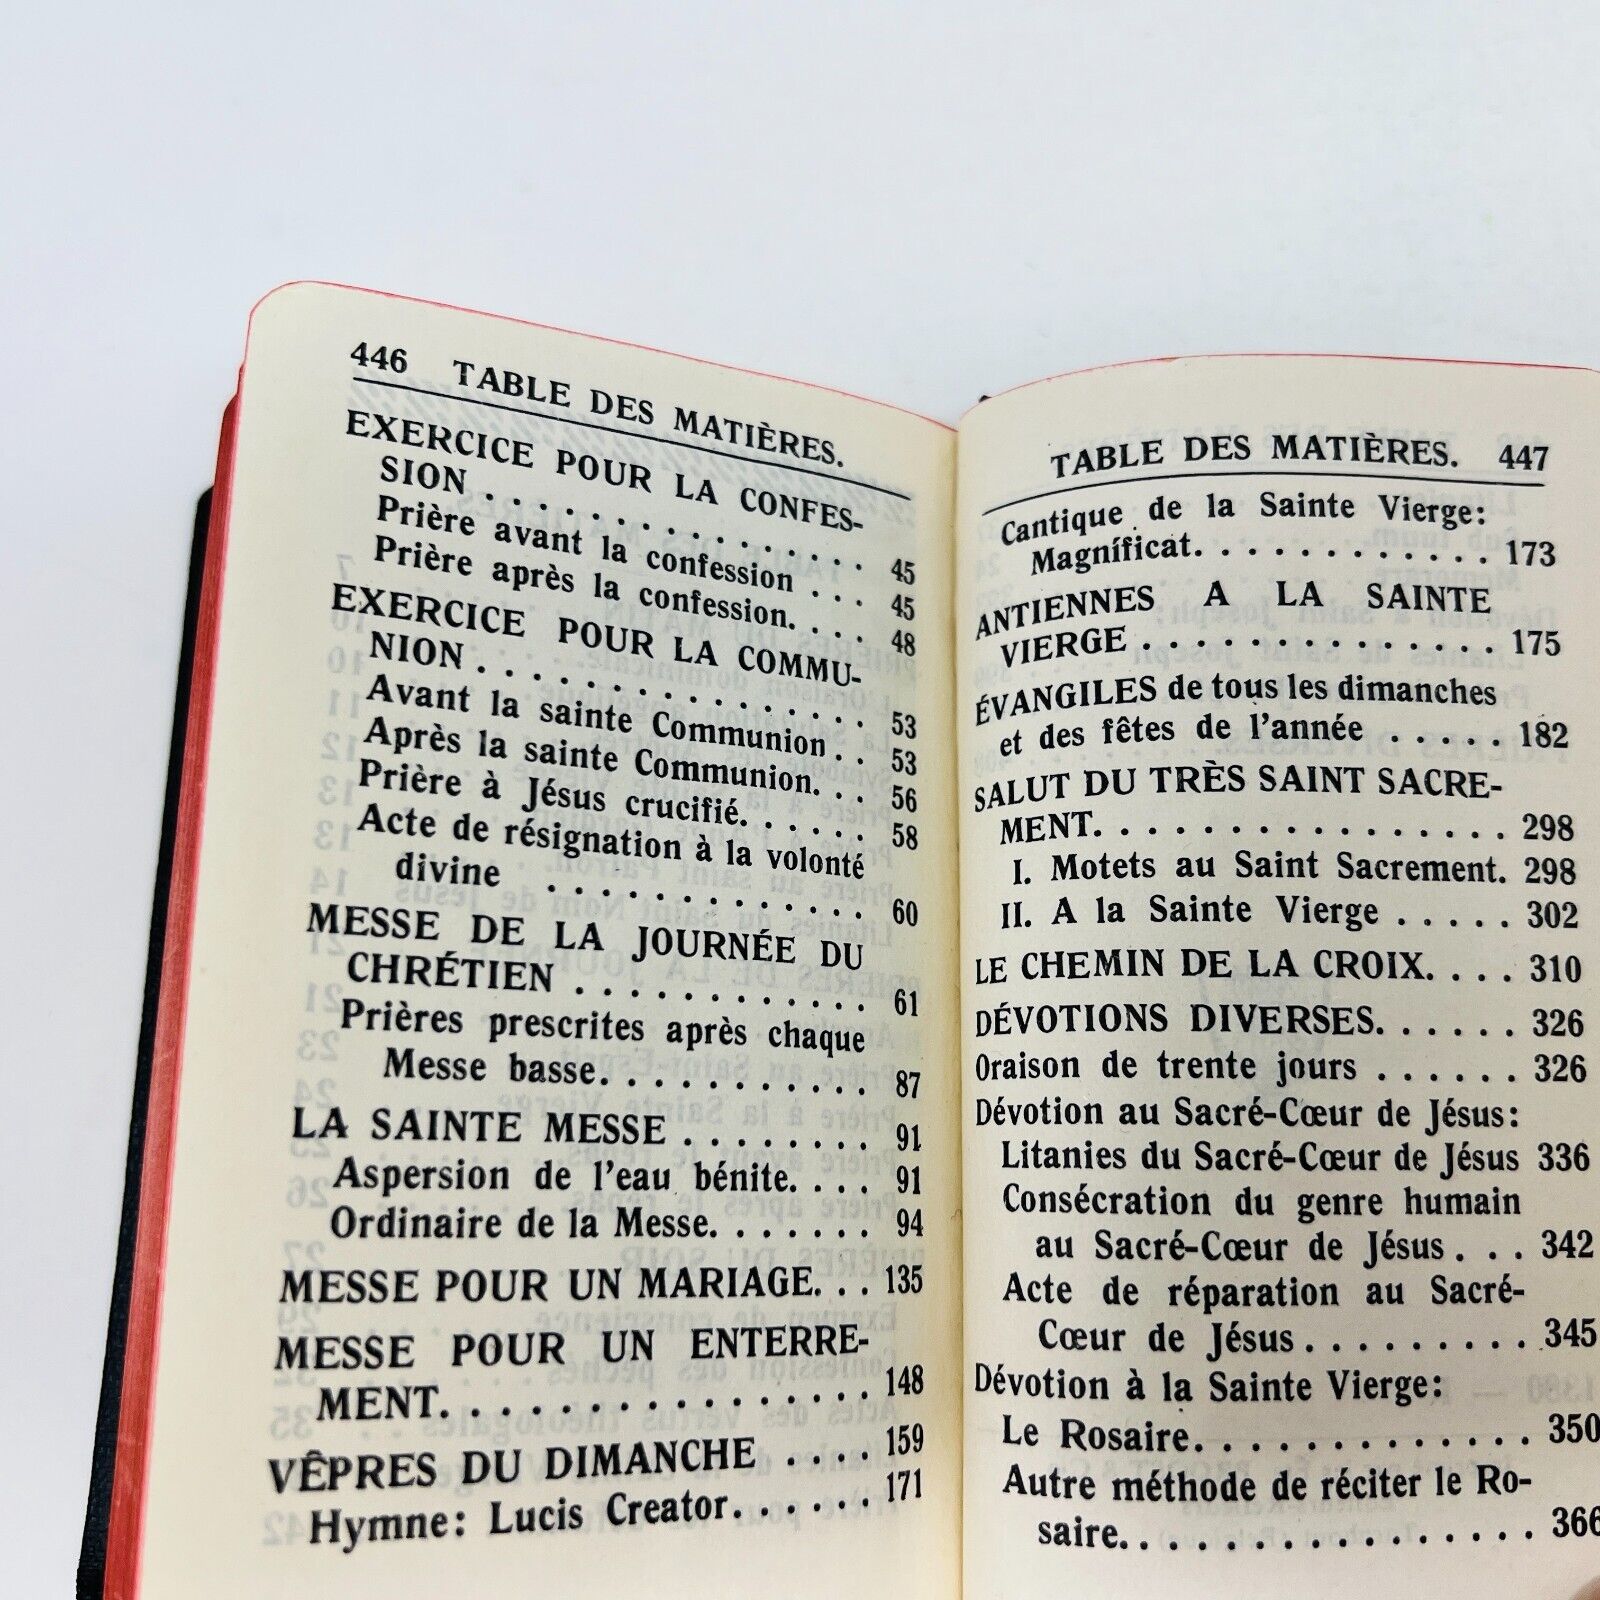 446 TABLE DES MATIÈRES.
EXERCICE POUR LA CONFES-
SION . . . . . . . . . . . . . 45
Prière avant la confession . . . 45
Prière après la confession. . . . 48
EXERCICE POUR LA COMMU-
NION . . . . . . . . . . . . . 53
Avant la sainte Communion . . 53
Après la sainte Communion. . . 56
Prière à Jésus crucifié. . . . . . 58
Acte de résignation à la volonté
divine . . . . . . . . . . . . 60
MESSE DE LA JOURNÉE DU
CHRÉTIEN . . . . . . . . . . . 61
Prières prescrites après chaque
Messe basse. . . . . . . . . . . 87
LA SAINTE MESSE . . . . . . . . 91
Aspersion de l'eau bénite. . . . 91
Ordinaire de la Messe. . . . . . . 94
MESSE POUR UN MARIAGE. . . 135
MESSE POUR UN ENTERRE-
MENT. . . . . . . . . . . . . . . 148
VÊPRES DU DIMANCHE . . . . 159
Hymne: Lucis Creator. . . . . . 171
TABLE DES MATIÈRES. 447
Cantique de la Sainte Vierge:
Magníficat. . . . . . . . . . . . 173
ANTIENNES A LA SAINTE
VIERGE . . . . . . . . . . . . . . 175
ÉVANGILES de tous les dimanches
et des fêtes de l'année . . . . . 182
SALUT DU TRÈS SAINT SACRE-
MENT. . . . . . . . . . . . . . . . 298
I. Motets au Saint Sacrement. 298
II. A la Sainte Vierge . . . . . 302
LE CHEMIN DE LA CROIX. . . . 310
DÉVOTIONS DIVERSES. . . . . . 326
Oraison de trente jours . . . . . . 326
Dévotion au Sacré-Cœur de Jésus:
Litanies du Sacré-Cœur de Jésus 336
Consécration du genre humain
au Sacré-Cœur de Jésus . . . 342
Acte de réparation au Sacré-
Cœur de Jésus . . . . . . . . . 345
Dévotion à la Sainte Vierge:
Le Rosaire. . . . . . . . . . . . . 350
Autre méthode de réciter le Ro-
saire. . . . . . . . . . . . . . . . 366